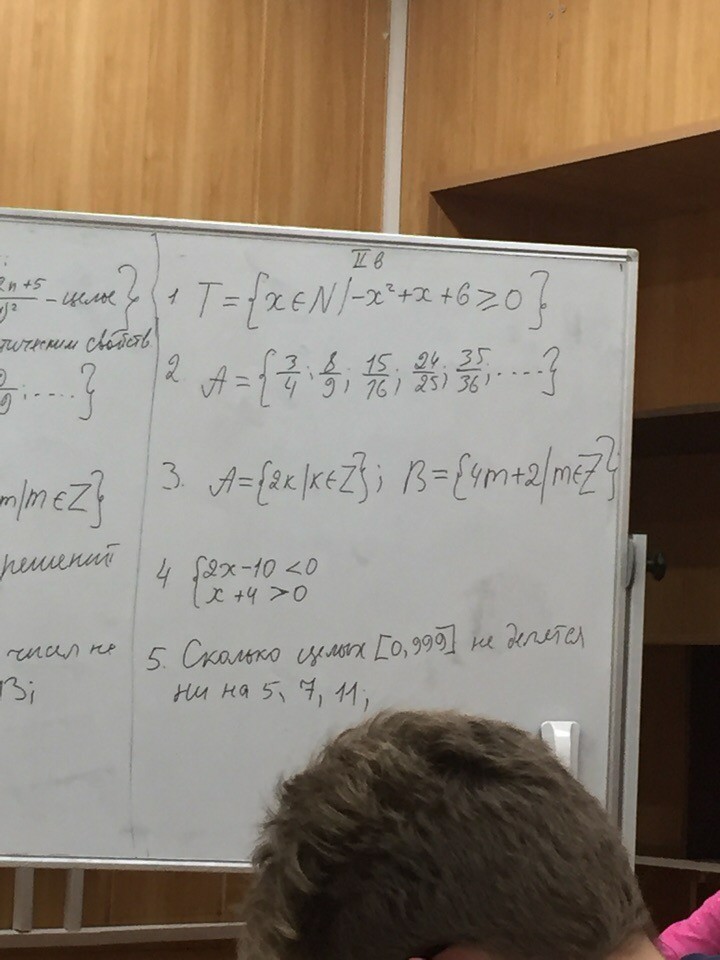 2n+5
— целое }
)²
тическим свойств
9 ; .... }
m | m ∈ Z }
решений
чисел не
II в
1 T = { x ∈ N | -x² + x + 6 ≥ 0 }
2 A = { 3/4 ; 8/9 ; 15/16 ; 24/25 ; 35/36 ; ..... }
3. A = {2k | k ∈ Z} ; B = {4m+2 | m ∈ Z}
4 { 2x-10 < 0
x + 4 > 0
5. Сколько целых [0,999] не делятся
ни на 5, 7, 11;